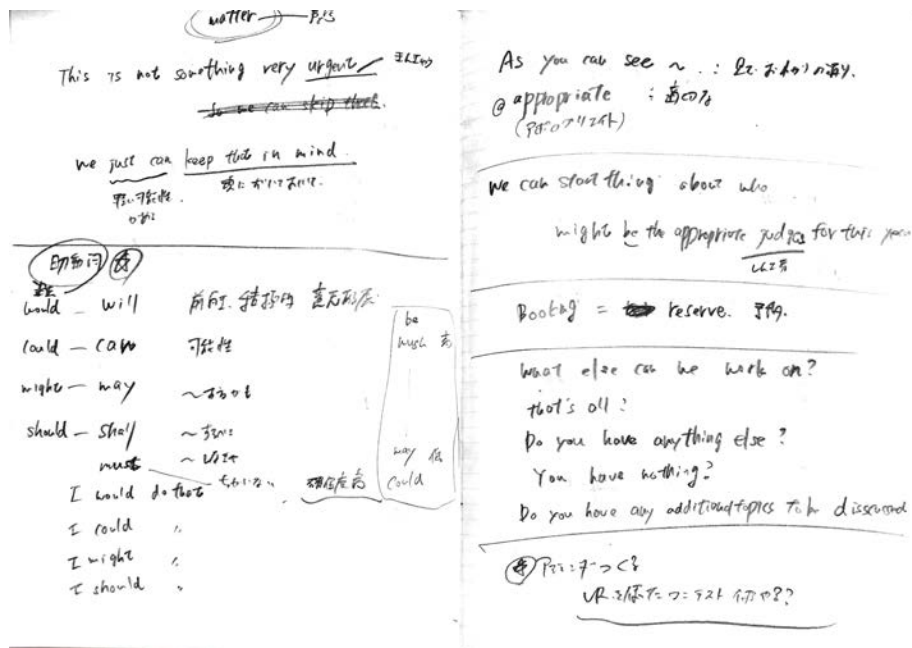 matter
This is not something very urgent
So we can skip that.
we just can keep that in mind.
頭に おいておいて.
助動詞
would — will
could — can 可能性
might — may ~するかも
should — shall ~すべき
must
I would do that ちがいない
I could 〃
I might 〃
I should 〃
be
must 高
may 低
could
As you can see ~ . : 見て おわかりの通り.
@ appropriate : 適切な
(アポロプリエイト)
we can start thing about who
might be the appropriate judges for this year
Booking = reserve. 予約.
What else can we work on?
that's all?
Do you have anything else?
You have nothing?
Do you have any additional topics to be discussed
アジェンダーつくる
VR を使った コンテスト 何やる?